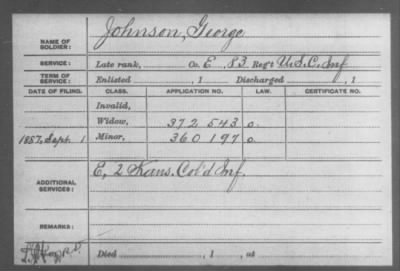 NAME OF SOLDIER: Johnson, George
SERVICE: Late rank, Co. E, 83 Reg't U.S.C. Inf
TERM OF SERVICE: Enlisted , 1 Discharged , 1
DATE OF FILING. CLASS. APPLICATION NO. LAW. CERTIFICATE NO.
Invalid,
Widow, 372 543 o.
1887, Sept. 1 Minor, 360 197 o.
ADDITIONAL SERVICES: E, 2 Kans. Col'd Inf.
REMARKS:
Died , 1 , at